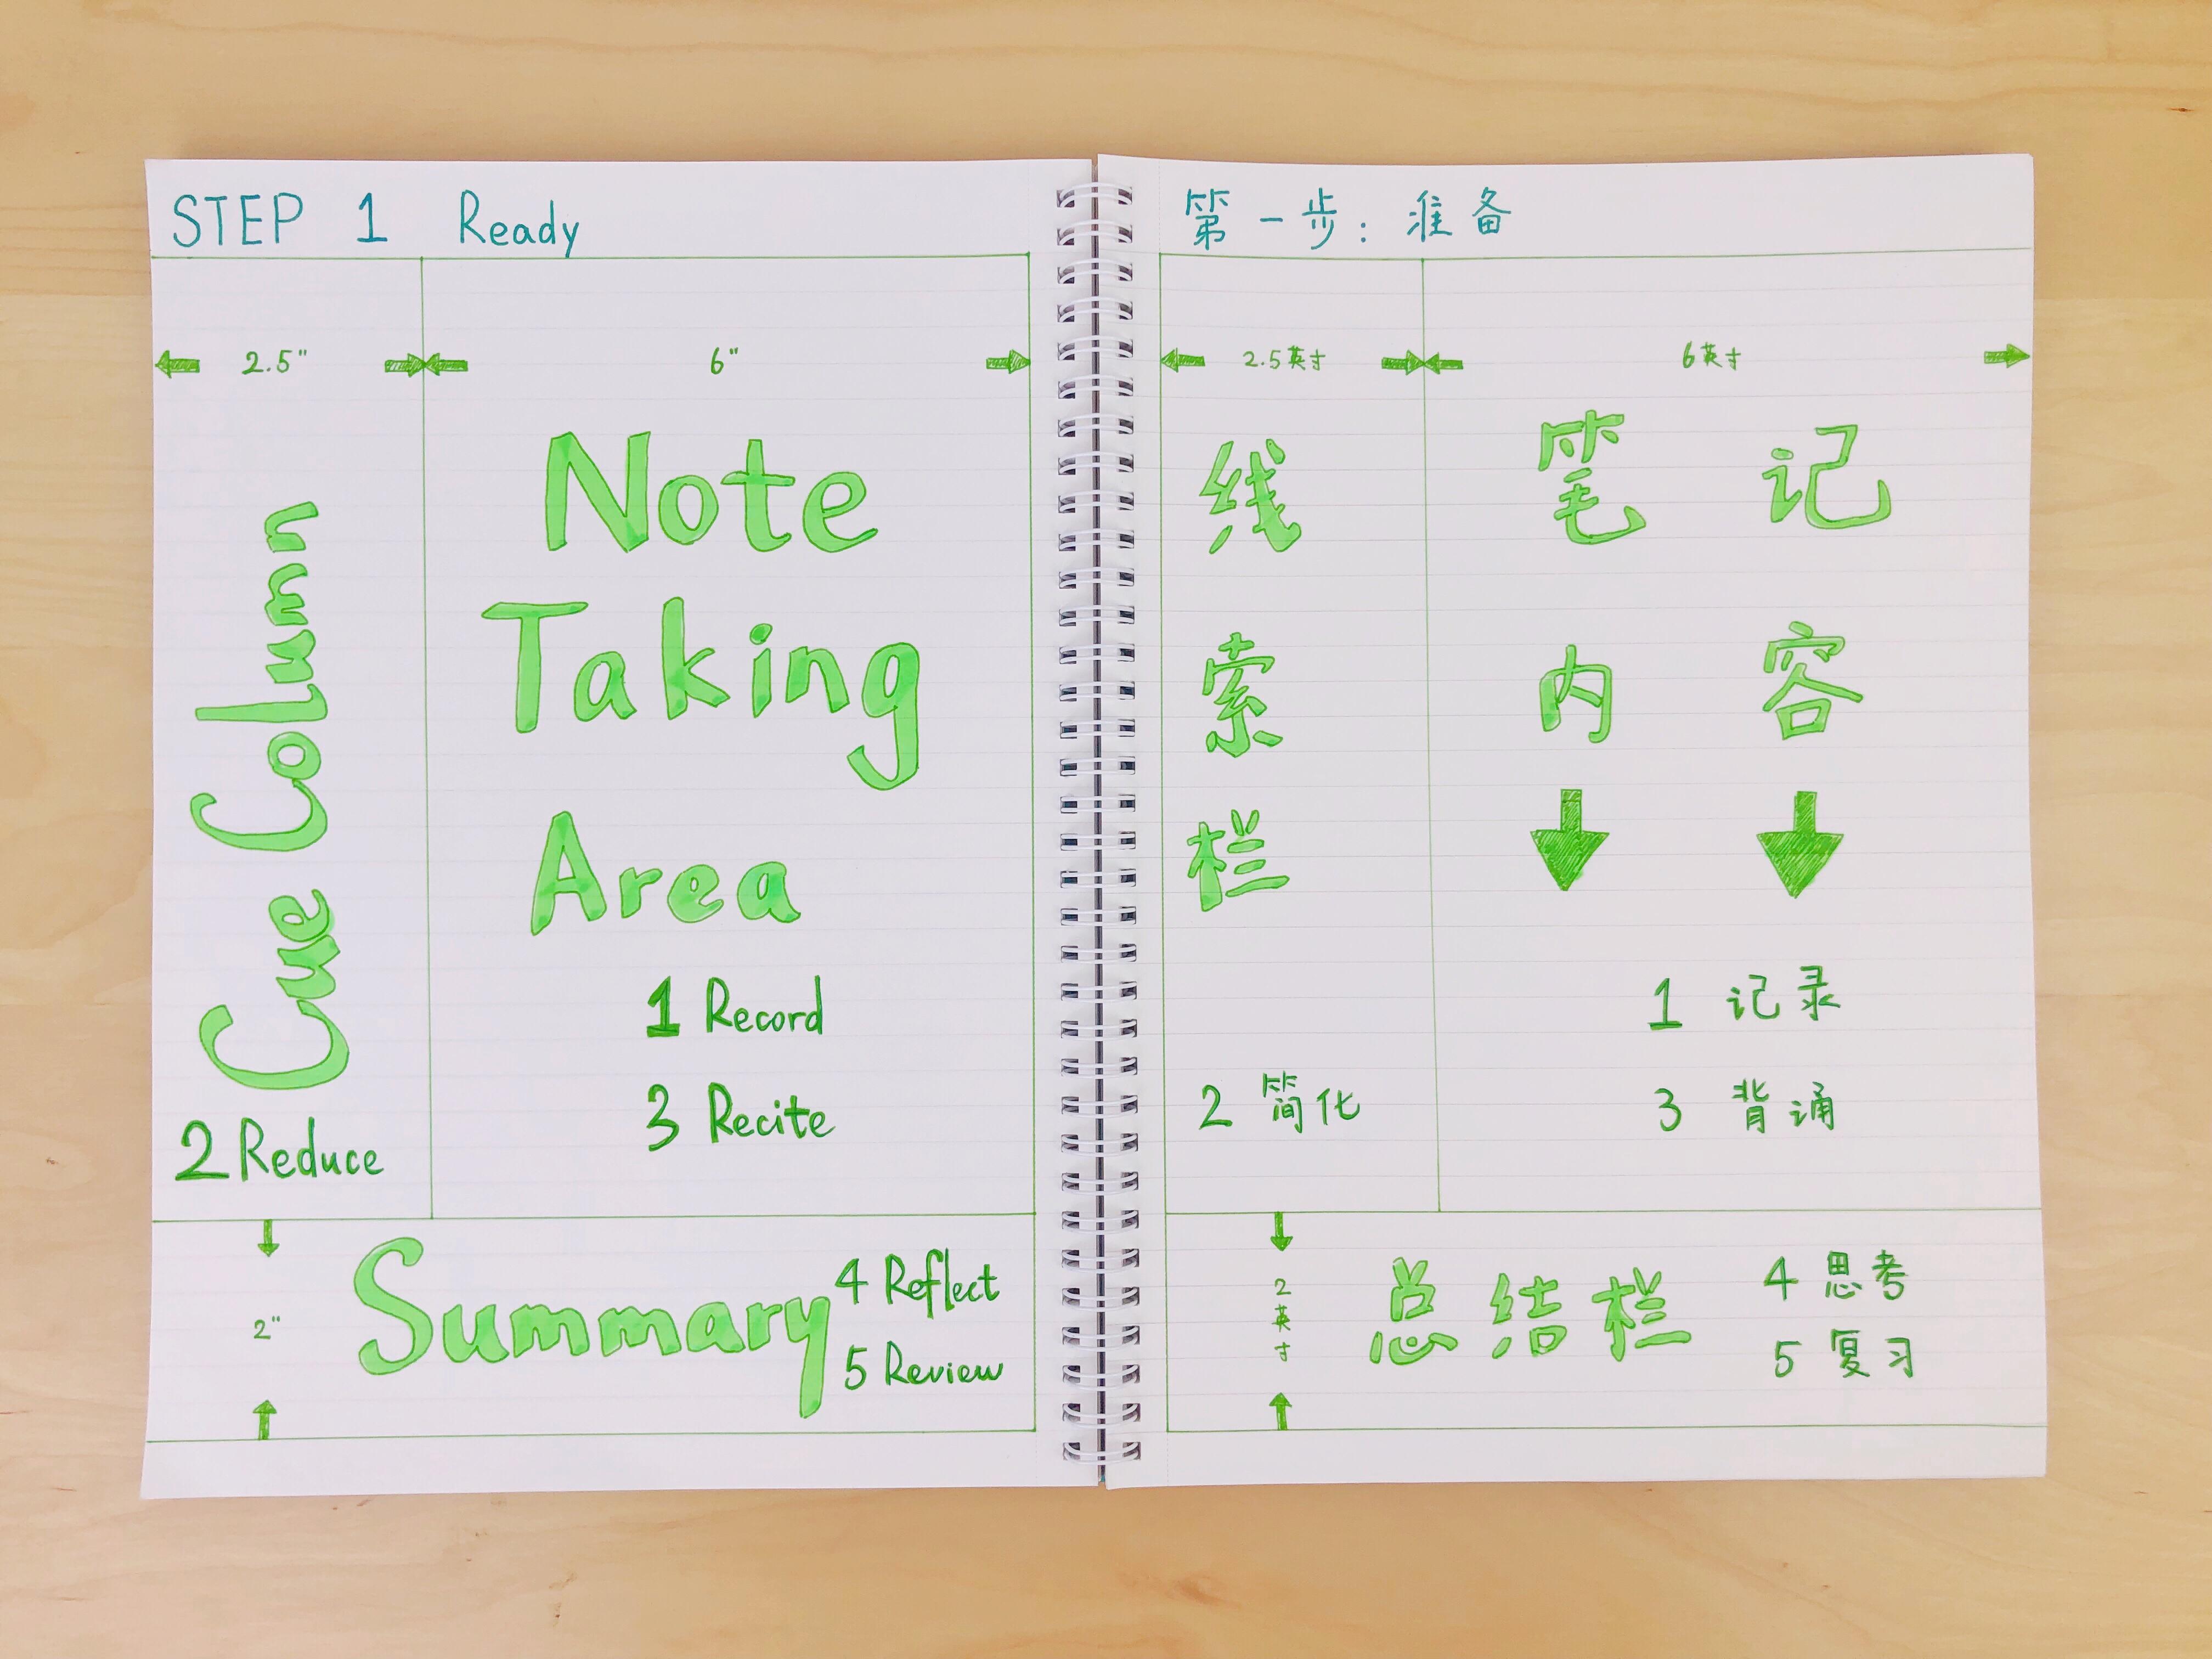 STEP 1 Ready
2.5"
6"
Cue Column
2 Reduce
Note
Taking
Area
1 Record
3 Recite
2"
Summary
4 Reflect
5 Review
第一步：准备
2.5英寸
6英寸
线索栏
2 简化
笔记
内容
1 记录
3 背诵
2英寸
总结栏
4 思考
5 复习